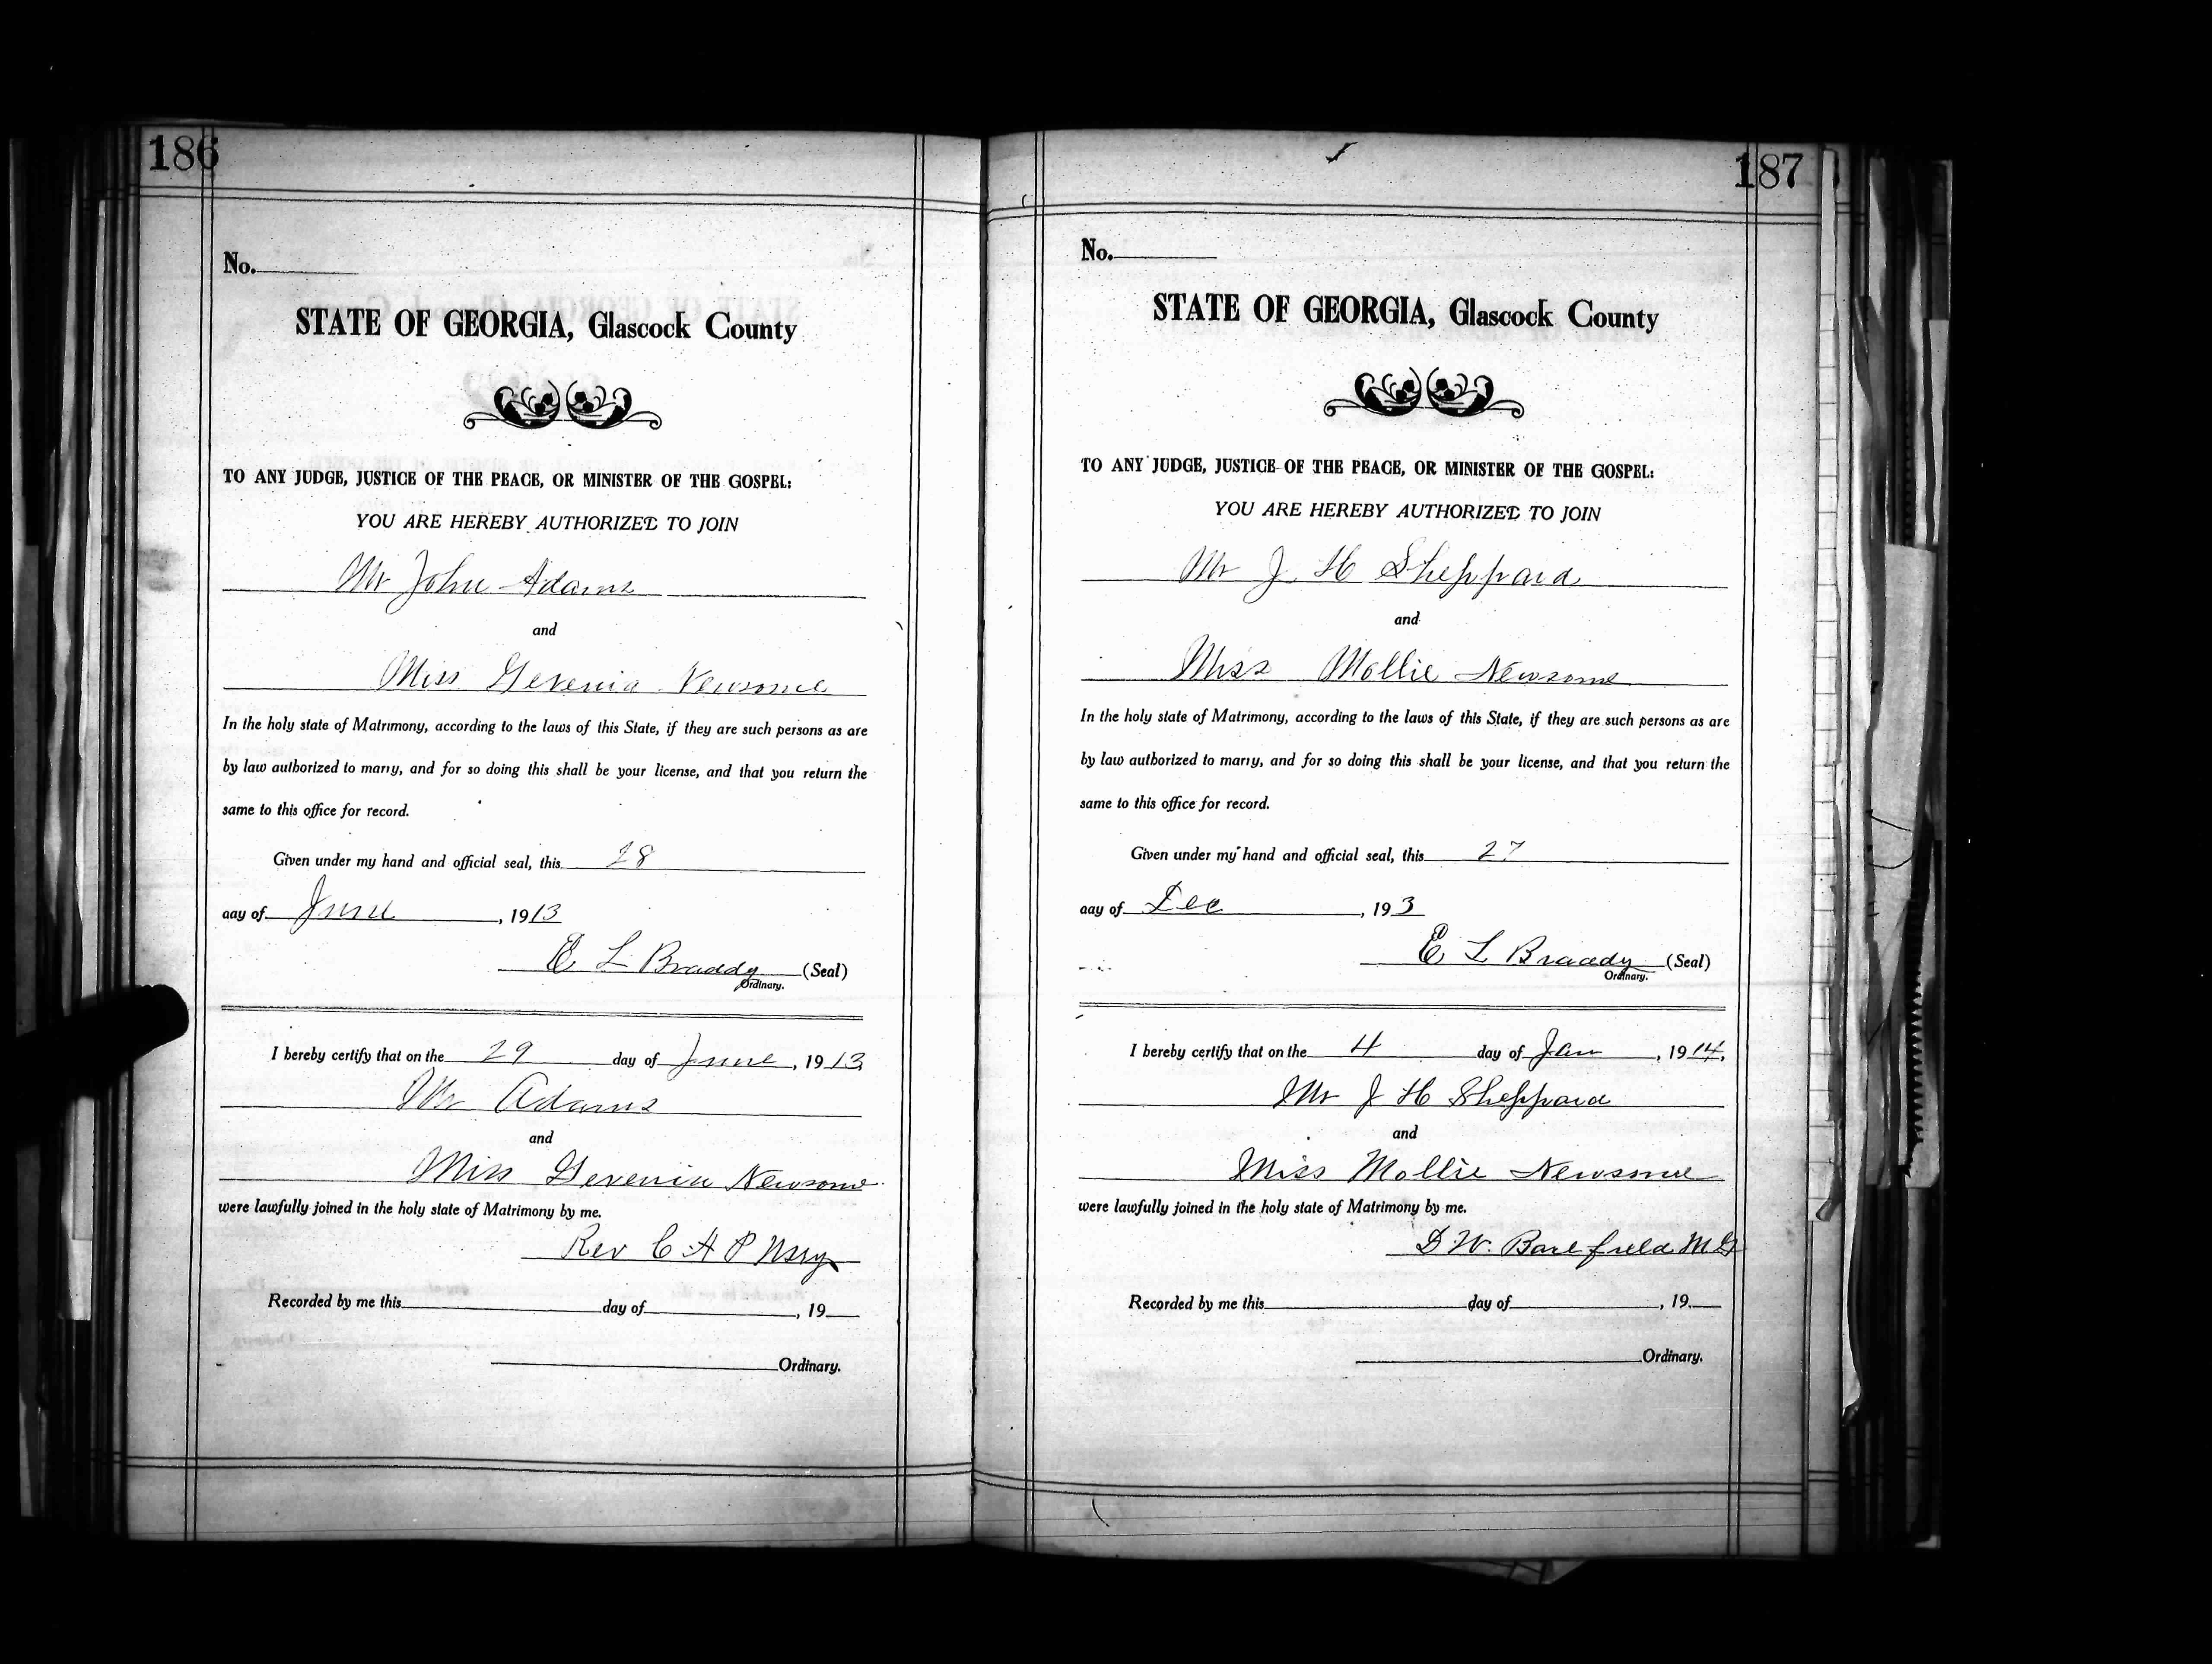 186
No.
STATE OF GEORGIA, Glascock County
TO ANY JUDGE, JUSTICE OF THE PEACE, OR MINISTER OF THE GOSPEL:
YOU ARE HEREBY AUTHORIZED TO JOIN
Mr John Adams
and
Miss Gevenia Newsome
In the holy state of Matrimony, according to the laws of this State, if they are such persons as are
by law authorized to marry, and for so doing this shall be your license, and that you return the
same to this office for record.
Given under my hand and official seal, this 28
day of June, 1913
E L Braddy (Seal)
Ordinary.
I hereby certify that on the 29 day of June, 1913
Mr Adams
and
Miss Gevenia Newsome
were lawfully joined in the holy state of Matrimony by me.
Rev C A P
Recorded by me this day of , 19
Ordinary.
187
No.
STATE OF GEORGIA, Glascock County
TO ANY JUDGE, JUSTICE OF THE PEACE, OR MINISTER OF THE GOSPEL:
YOU ARE HEREBY AUTHORIZED TO JOIN
Mr J H Sheppard
and
Miss Mollie Newsome
In the holy state of Matrimony, according to the laws of this State, if they are such persons as are
by law authorized to marry, and for so doing this shall be your license, and that you return the
same to this office for record.
Given under my hand and official seal, this 27
day of Dec, 193
E L Braddy (Seal)
Ordinary.
I hereby certify that on the 4 day of Jan, 1914.
Mr J H Sheppard
and
Miss Mollie Newsome
were lawfully joined in the holy state of Matrimony by me.
D W. Barefield M G
Recorded by me this day of , 19
Ordinary.